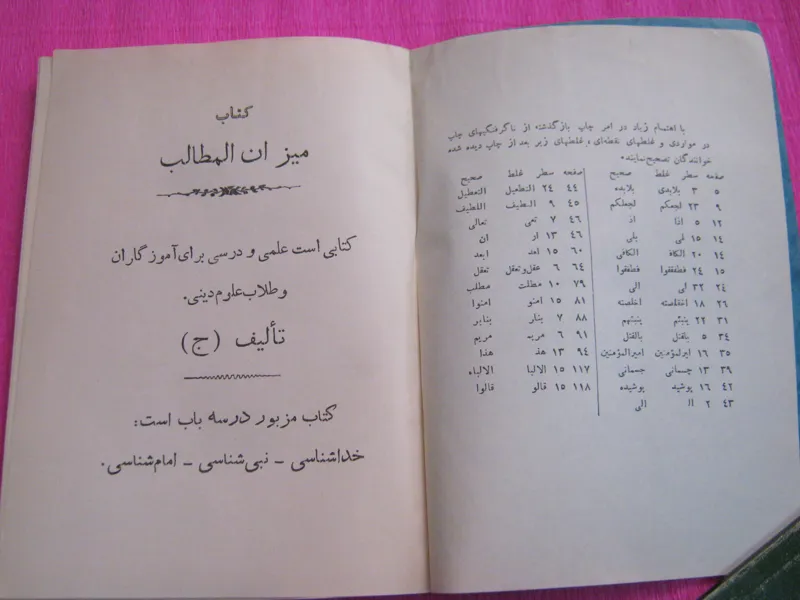 با اهتمام زیاد در امر چاپ باز گذشته از ناگرفتگیهای چاپ
در مواردی و غلطهای نقطه‌ای، غلطهای زیر بعد از چاپ دیده شده
خوانندگان تصحیح نمایند.
صفحه سطر غلط صحیح
۵ ۳ بلابدی بلابده
۹ ۲۳ لجعلکم لجعلکم
۱۲ ۵ اذا اذ
۱۴ ۱۵ لی بلی
۱۴ ۲۰ الکاف الکافی
۱۵ ۲۴ فطفقوا فطفقوا
۲۴ ۳۲ لی الی
۲۶ ۱۸ اخلصته اخلصته
۳۱ ۲۲ ینبئهم
۳۴ ۵ بلقتل بالقتل
۳۵ ۱۶ امیرلمؤمنین امیرالمؤمنین
۳۹ ۱۳ چسمانی جسمانی
۴۲ ۱۶ پوشید پوشیده
۴۳ ۲ الـ الی
صفحه سطر غلط صحیح
۴۴ ۲۴ التعطیل
۴۵ ۹ الـطیف اللطیف
۴۶ ۷ تعی تعالی
۴۶ ۱۳ ار ان
۶۰ ۱۵ ابعد
۶۴ ۶ عقل وتعقل تعقل
۷۹ ۱۰ مطلت مطلب
۸۱ ۱۵ امنو امنوا
۸۸ ۷ بنار بنابر
۹۱ ۶ مریه مریم
۹۴ ۱۳ هذ هذا
۱۱۷ ۱۵ الالبا الالباء
۱۱۸ ۱۵ قالو قالوا
کتاب
میزان المطالب
کتابی است علمی و درسی برای آموزگاران
و طلاب علوم دینی.
تألیف (ج)
کتاب مزبور در سه باب است:
خداشناسی - نبی‌شناسی - امام‌شناسی.